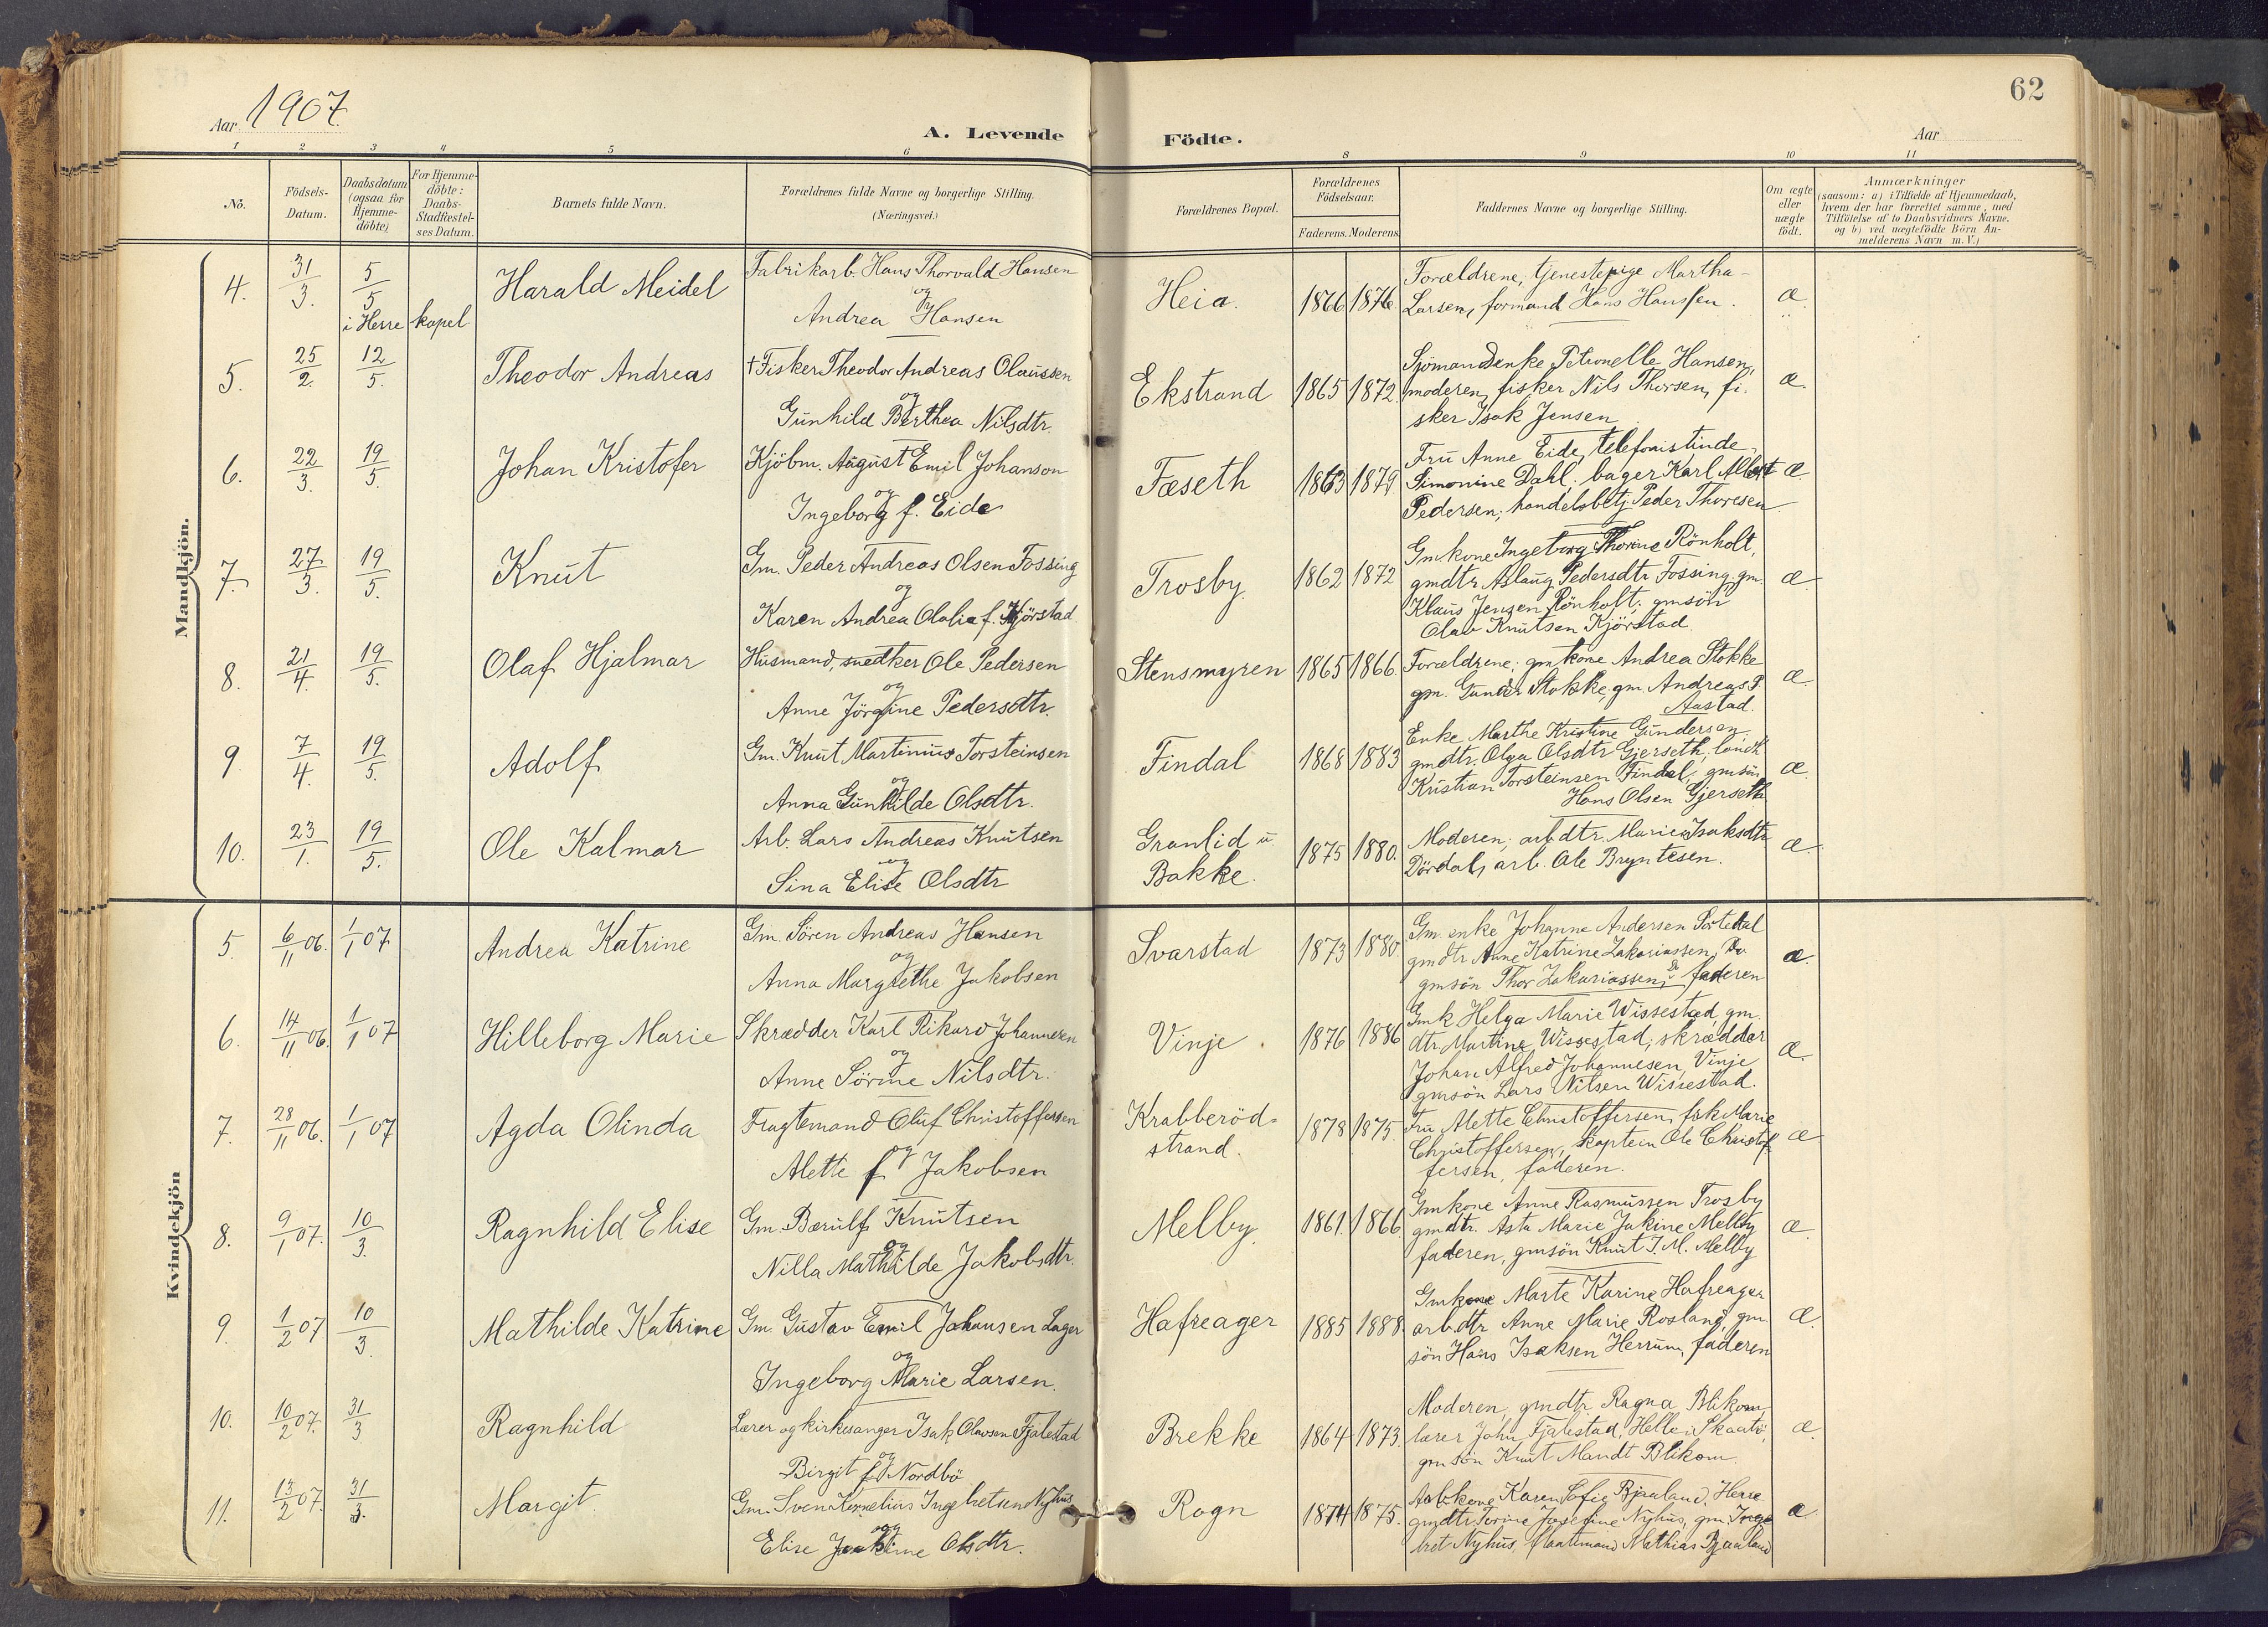 62
Aar 1907.
A. Levende Födte.
Aar
1 2 3 4 5 6 8 9 10 11
No.
Födsels-Datum.
Daabsdatum (ogsaa for Hjemmedöbte)
For Hjemmedöbte: Daabs-Stadfæstelses Datum.
Barnets fulde Navn.
Forældrenes fulde Navne og borgerlige Stilling. (Næringsvei.)
Forældrenes Bopæl.
Forældrenes Födselsaar.
Faderens. Moderens.
Faddernes Navne og borgerlige Stilling.
Om ægte eller uægte födt.
Anmærkninger
(saasom: a) i Tilfælde af Hjemmedaab,
hvem der har forrettet samme, med
Tilföielse af to Daabsvidners Navne.
og b) ved uægtefödte Börn An-
melderens Navn m. V.)
Mandkjön.
4. 31/3. 5/5 i Herre kapel
Harald Meidel
Fabrikarb. Hans Thorvald Hansen
og
Andrea Hansen
Heia. 1866. 1876.
Forældrene, tjenestepige Martha
Larsen, formand Hans Hanssen.
æ.
5. 25/2. 12/5.
Theodor Andreas
† Fisker Theodor Andreas Olaussen
og
Gunhild Berthea Nilsdtr.
Ekstrand 1865 1872.
Sjömandsenke Petronelle Hansen,
moderen, fisker Nils Thorsen, fi-
sker Isak Jensen
æ.
6. 22/3. 19/5.
Johan Kristofer
Kjöbm. August Emil Johanson
og
Ingeborg f. Eide
Fæseth 1863 1879.
Fru Anne Eide, telefonistinde
Simonine Dahl; bager Karl Albert
Pedersen; handelsbetj. Peder Thoresen
æ.
7. 27/3. 19/5.
Knut
Gm. Peder Andreas Olsen Fossing
og
Karen Andrea Olalia f. Kjörstad
Trosby. 1862 1872
Gmkone Ingeborg Thorine Rönholt,
gmdtr. Aslaug Pedersdtr Fossing, gm.
Klaus Jensen Rönholt; gmsön
Olav Knutsen Kjörstad
æ
8. 21/4. 19/5.
Olaf Hjalmar
Husmand, snedker Ole Pedersen
og
Anne Jörgine Pedersdtr.
Stensmyren 1865 1866.
Forældrene; gmkone Andrea Stokke
gm. Gunder Stokke, gm. Andreas P.
Aastad.
æ.
9 7/4. 19/5.
Adolf
Gm. Knut Martinius Torsteinsen
og
Anna Gunhilde Olsdtr.
Findal 1868 1883
Enke Marthe Kristine Gundersen
gmdtr. Olga Olsdtr Gjerseth,
Kristian Torsteinsen Findal; gmsön
Hans Olsen Gjerseth
æ.
10. 23/1. 19/5.
Ole Kalmar
Arb. Lars Andreas Knutsen
og
Sina Elise Olsdtr
Granlid u
Bakke. 1875 1880.
Moderen; arb.dtr. Marie Isaksdtr
Dördal, arb. Ole Bryntesen.
æ.
Kvindekjön
5. 6/11 06. 1/1 07.
Andrea Katrine
Gm. Sören Andreas Hansen
og
Anna Margrethe Jakobsen
Svarstad 1873 1880.
Gm. enke Johanne Andersen
gmdtr Anne Katrine Zakariassen,
gmsön Thor Zakariassen, faderen
æ.
6. 14/11 06. 1/1 07
Hilleborg Marie
Skrædder Karl Rikard Johannesen
og
Anne Sörine Nilsdtr.
Vinje. 1876 1886
Gmk Helga Marie Wissestad, gm.
dtr. Martine Wissestad, skrædder
Johan Alfred Johannesen, Vinje
gmsön Lars Nilsen Wissestad.
æ.
7. 28/11 06. 1/1 07
Agda Olinda
Fragtemand Oluf Christoffersen
og
Alette f. Jakobsen
Krabberöd-
strand. 1878 1875.
Fru Alette Christoffersen, frk Marie
Christoffersen, kaptein Ole Christof-
fersen, faderen.
æ
8. 9/1 07. 10/3.
Ragnhild Elise
Gm. Bærulf Knutsen
og
Nilla Mathilde Jakobsdtr.
Melby. 1861. 1866.
Gmkone Anne Rasmussen Trosby
gmdtr. Asta Marie Jakine Melby
faderen, gmsön Knut J. M. Melby
æ.
9. 1/2 07 10/3.
Mathilde Katrine
Gm. Gustav Emil Johansen Lager
og
Ingeborg Marie Larsen.
Hafreager 1885 1888.
Gmkone Marte Karine Hafreager
arb.dtr Anne Marie Rosland, gm.
sön Hans Isaksen Herrum, faderen
æ.
10. 10/2 07. 31/3
Ragnhild
Lærer og kirkesanger Isak Olavsen Fjalestad
og
Birgit f. Nordbö
Brekke 1864 1873.
Moderen, gmdtr Ragna Blikom,
lærer John Fjalestad, Helle i Skaatö,
gmsön Knut Mandt Blikom.
æ.
11. 13/2 07. 31/3.
Margit
Gm. Sven Kornelius Ingebretsen Nyhus
og
Elise Joakime Olsdtr.
Rogn 1874 1875.
Arb.kone Karen Sofie Bjaaland, Herre
gmdtr. Torine Josefine Nyhus, gm Inge-
bret Nyhus, flaatemand Mathias Bjaaland
æ